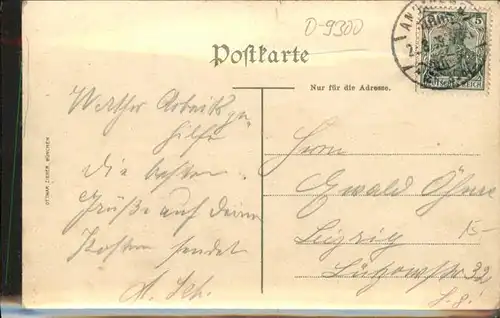 D-9300
5
Postkarte
Nur für die Adresse.
OTTMAR ZIEHER, MÜNCHEN
Werther Arbeitsge-
hilfe
die besten
Grüße auf deine
Kosten sendet
A. Sch.
Herrn
Ewald
Leipzig
Lützowstr 32
15-